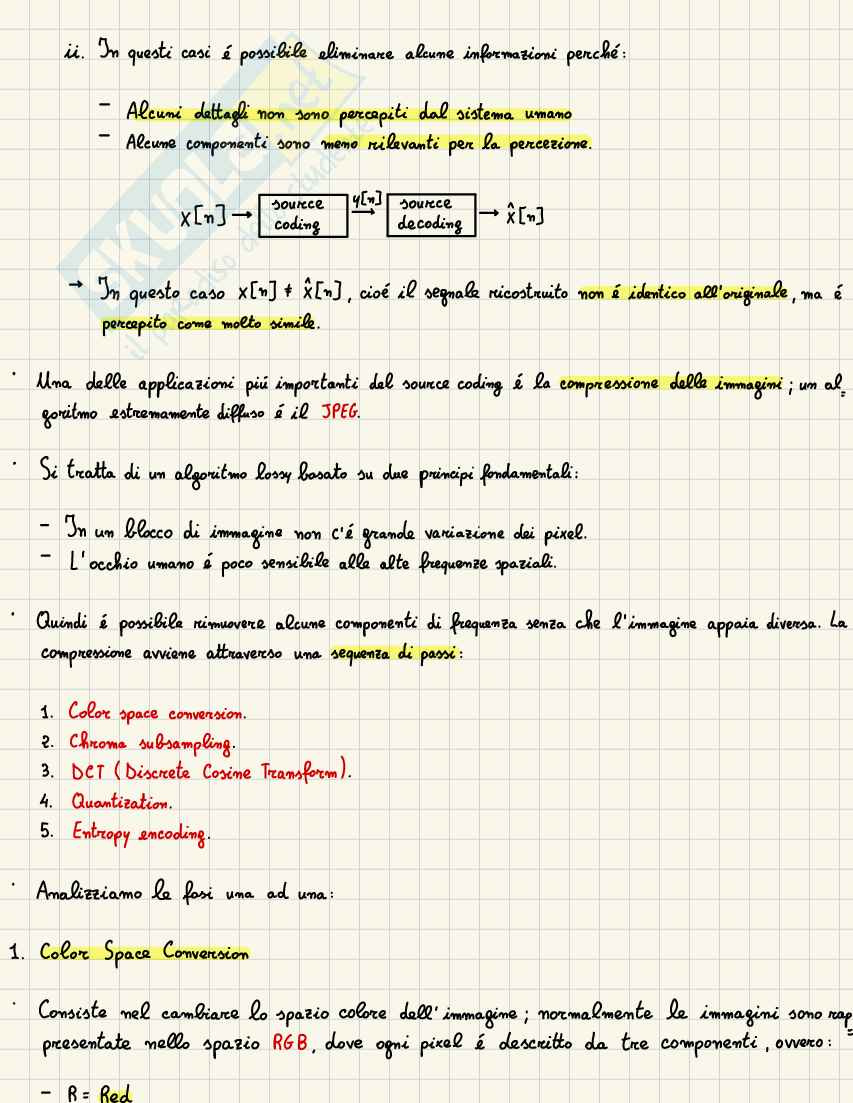 ii. In questi casi é possibile eliminare alcune informazioni perché:
– Alcuni dettagli non sono percepiti dal sistema umano
– Alcune componenti sono meno rilevanti per la percezione.
x[n] → source coding y[n] → source decoding → x̂[n]
→ In questo caso x[n] ≠ x̂[n], cioé il segnale ricostruito non é identico all'originale, ma é
percepito come molto simile.
· Una delle applicazioni piú importanti del source coding é la compressione delle immagini; un al=
goritmo estremamente diffuso é il JPEG.
· Si tratta di un algoritmo lossy basato su due principi fondamentali:
– In un blocco di immagine non c'é grande variazione dei pixel.
– L'occhio umano é poco sensibile alle alte frequenze spaziali.
· Quindi é possibile rimuovere alcune componenti di frequenza senza che l'immagine appaia diversa. La
compressione avviene attraverso una sequenza di passi:
1. Color space conversion.
2. Chroma subsampling.
3. DCT (Discrete Cosine Transform).
4. Quantization.
5. Entropy encoding.
· Analizziamo le fasi una ad una:
1. Color Space Conversion
· Consiste nel cambiare lo spazio colore dell'immagine; normalmente le immagini sono rap=
presentate nello spazio RGB, dove ogni pixel é descritto da tre componenti, ovvero:
– R = Red
SKUOLA.net
il paradiso dello studente